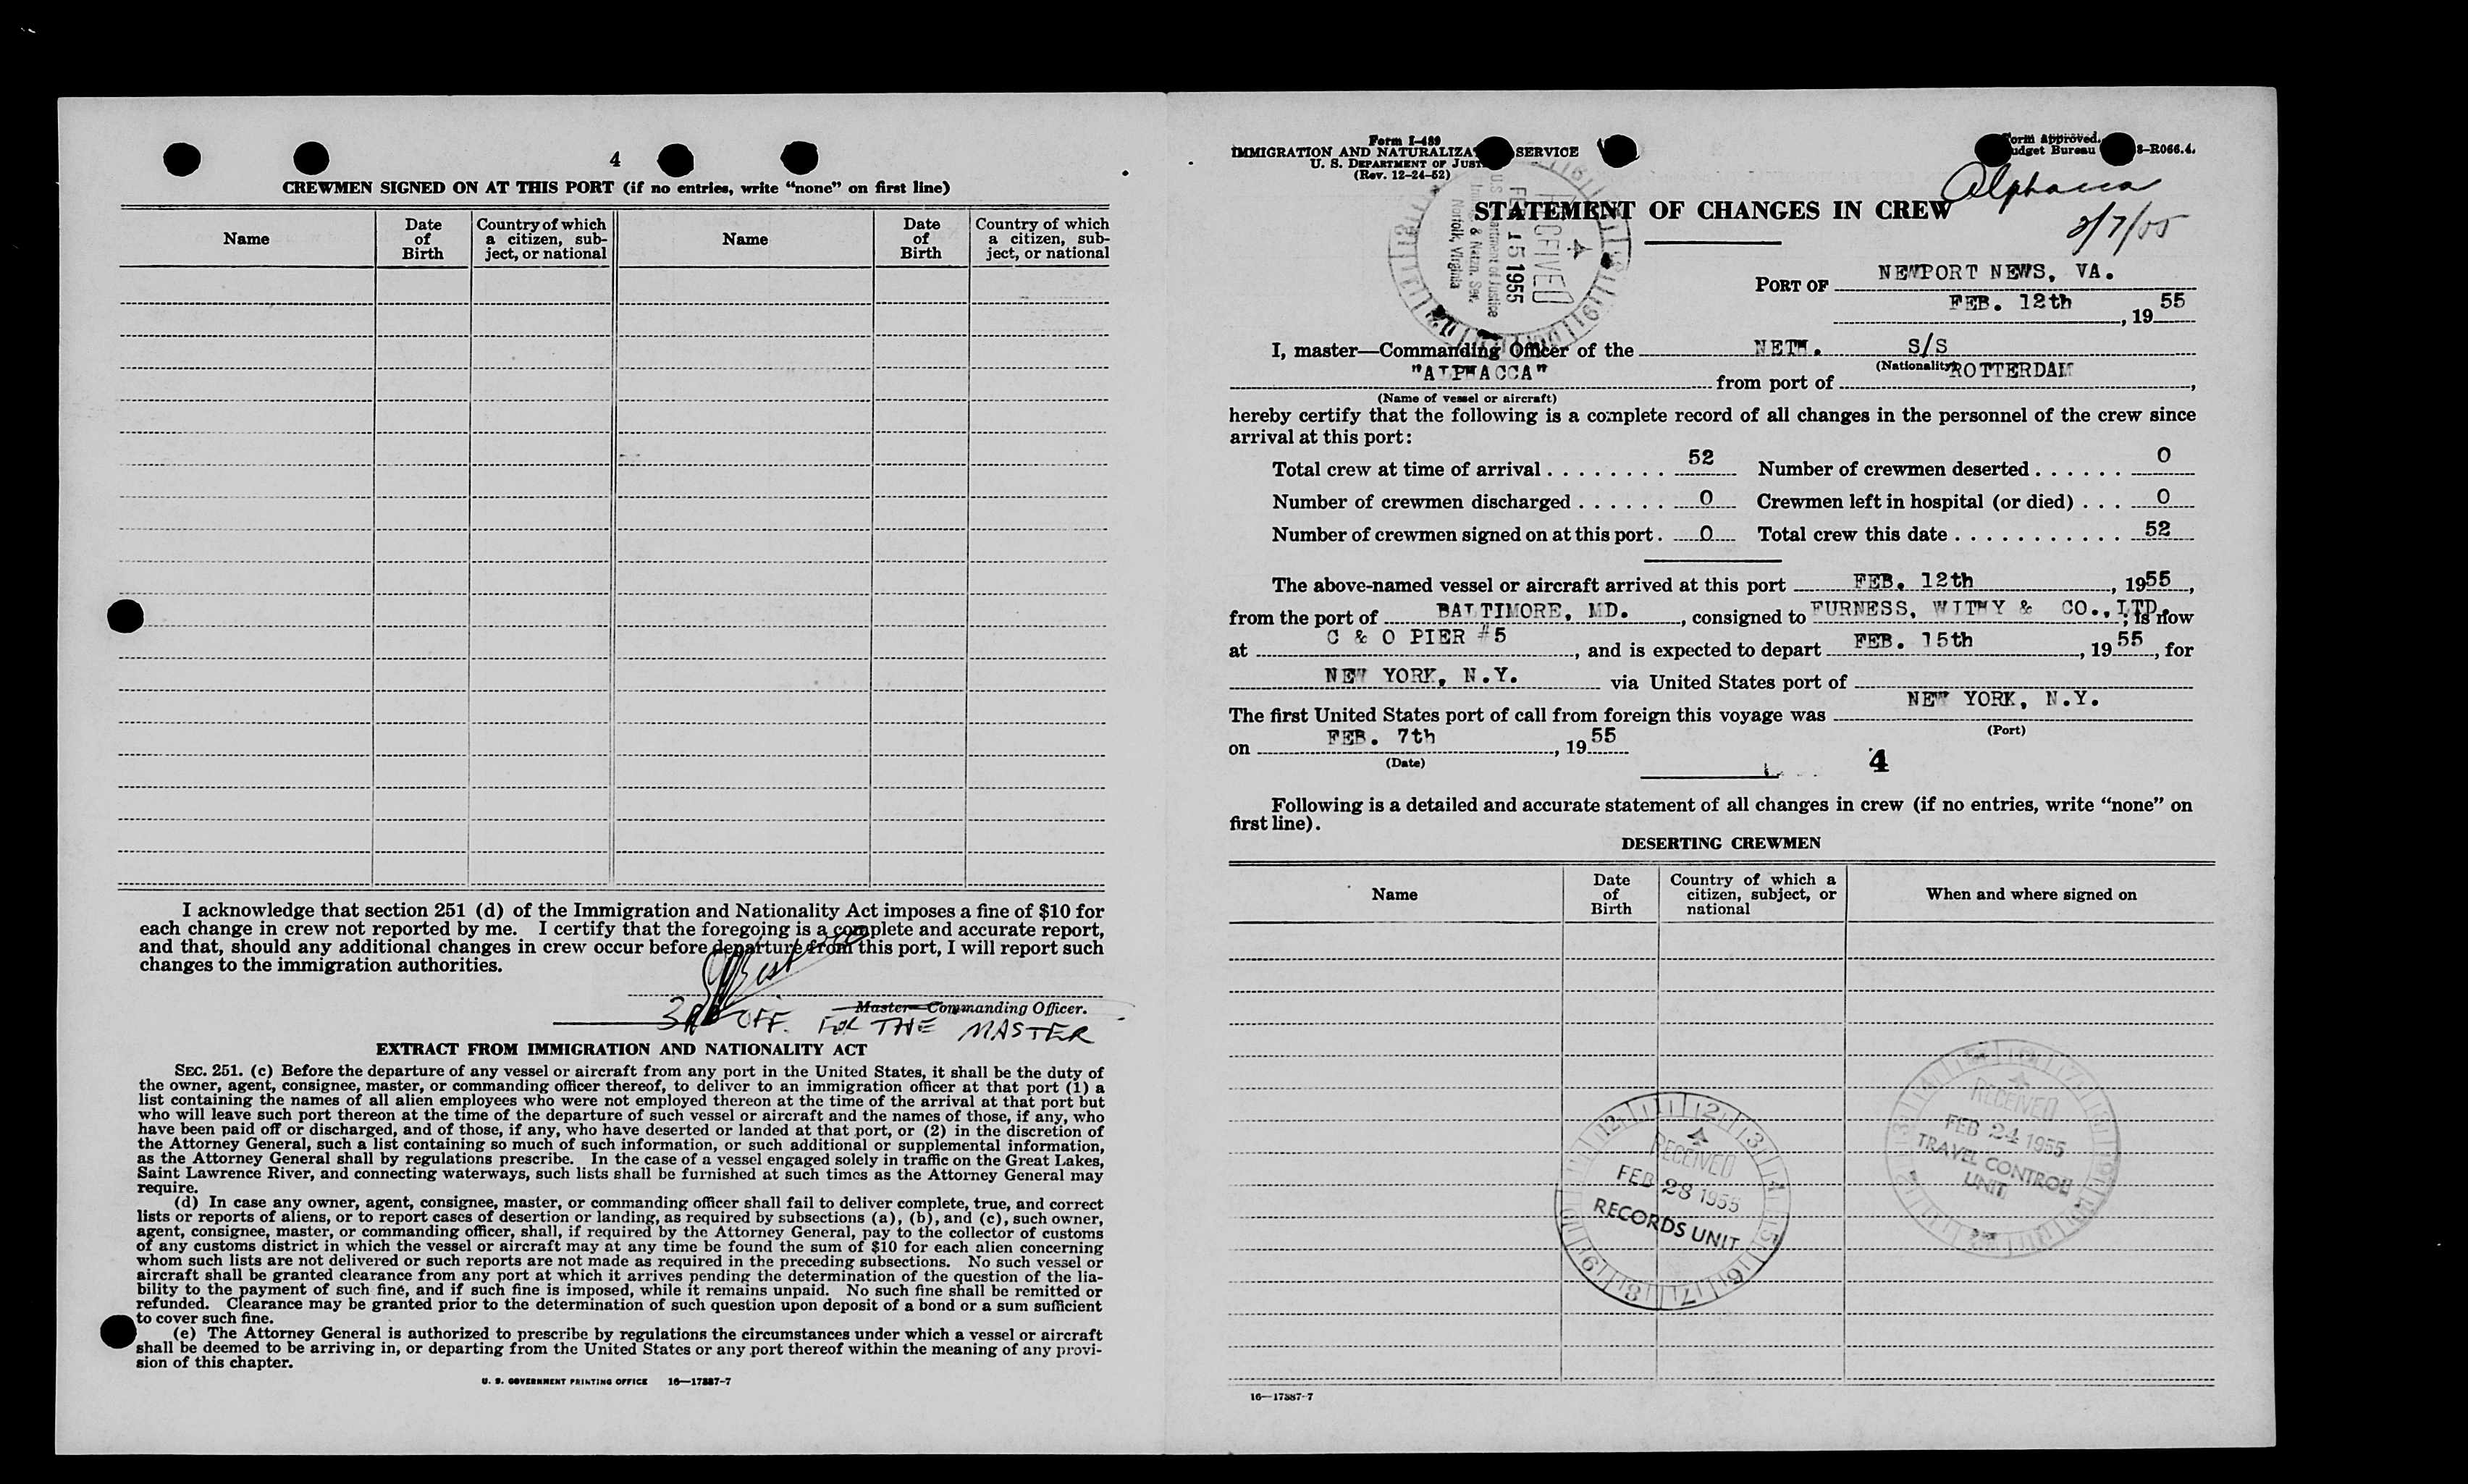 4
CREWMEN SIGNED ON AT THIS PORT (if no entries, write "none" on first line)
Name
Date of Birth
Country of which a citizen, subject, or national
Name
Date of Birth
Country of which a citizen, subject, or national
I acknowledge that section 251 (d) of the Immigration and Nationality Act imposes a fine of $10 for
each change in crew not reported by me. I certify that the foregoing is a complete and accurate report,
and that, should any additional changes in crew occur before departure from this port, I will report such
changes to the immigration authorities.
Master—Commanding Officer.
3RD OFF. FOR THE MASTER
EXTRACT FROM IMMIGRATION AND NATIONALITY ACT
SEC. 251. (c) Before the departure of any vessel or aircraft from any port in the United States, it shall be the duty of
the owner, agent, consignee, master, or commanding officer thereof, to deliver to an immigration officer at that port (1) a
list containing the names of all alien employees who were not employed thereon at the time of the arrival at that port but
who will leave such port thereon at the time of the departure of such vessel or aircraft and the names of those, if any, who
have been paid off or discharged, and of those, if any, who have deserted or landed at that port, or (2) in the discretion of
the Attorney General, such a list containing so much of such information, or such additional or supplemental information,
as the Attorney General shall by regulations prescribe. In the case of a vessel engaged solely in traffic on the Great Lakes,
Saint Lawrence River, and connecting waterways, such lists shall be furnished at such times as the Attorney General may
require.
(d) In case any owner, agent, consignee, master, or commanding officer shall fail to deliver complete, true, and correct
lists or reports of aliens, or to report cases of desertion or landing, as required by subsections (a), (b), and (c), such owner,
agent, consignee, master, or commanding officer, shall, if required by the Attorney General, pay to the collector of customs
of any customs district in which the vessel or aircraft may at any time be found the sum of $10 for each alien concerning
whom such lists are not delivered or such reports are not made as required in the preceding subsections. No such vessel or
aircraft shall be granted clearance from any port at which it arrives pending the determination of the question of the lia-
bility to the payment of such fine, and if such fine is imposed, while it remains unpaid. No such fine shall be remitted or
refunded. Clearance may be granted prior to the determination of such question upon deposit of a bond or a sum sufficient
to cover such fine.
(e) The Attorney General is authorized to prescribe by regulations the circumstances under which a vessel or aircraft
shall be deemed to be arriving in, or departing from the United States or any port thereof within the meaning of any provi-
sion of this chapter.
U. S. GOVERNMENT PRINTING OFFICE 16—17887-7
Form I-489
IMMIGRATION AND NATURALIZA SERVICE
U. S. DEPARTMENT OF JUST
(Rev. 12-24-52)
orm Approved.
udget Bureau 3-R066.4.
Alphacca
2/7/55
RECEIVED
FEB 15 1955
U.S. Department of Justice
Immig. & Natzn. Ser.
Norfolk, Virginia
STATEMENT OF CHANGES IN CREW
PORT OF NEWPORT NEWS, VA.
FEB. 12th, 1955
I, master—Commanding Officer of the NETH. S/S
(Nationality)
"ALPHACCA" from port of ROTTERDAM,
(Name of vessel or aircraft)
hereby certify that the following is a complete record of all changes in the personnel of the crew since
arrival at this port:
Total crew at time of arrival . . . . . . . . 52 Number of crewmen deserted . . . . . . 0
Number of crewmen discharged . . . . . . 0 Crewmen left in hospital (or died) . . . 0
Number of crewmen signed on at this port . 0 Total crew this date . . . . . . . . . . . 52
The above-named vessel or aircraft arrived at this port FEB. 12th, 1955,
from the port of BALTIMORE, MD., consigned to FURNESS, WITHY & CO., LTD.; is now
at C & O PIER #5, and is expected to depart FEB. 15th, 1955, for
NEW YORK, N.Y. via United States port of
The first United States port of call from foreign this voyage was NEW YORK, N.Y.
(Port)
on FEB. 7th, 1955
(Date)
4
Following is a detailed and accurate statement of all changes in crew (if no entries, write "none" on
first line).
DESERTING CREWMEN
Name
Date of Birth
Country of which a citizen, subject, or national
When and where signed on
RECEIVED
FEB 24 1955
TRAVEL CONTROL
UNIT
RECEIVED
FEB 28 1955
RECORDS UNIT
16—17887-7